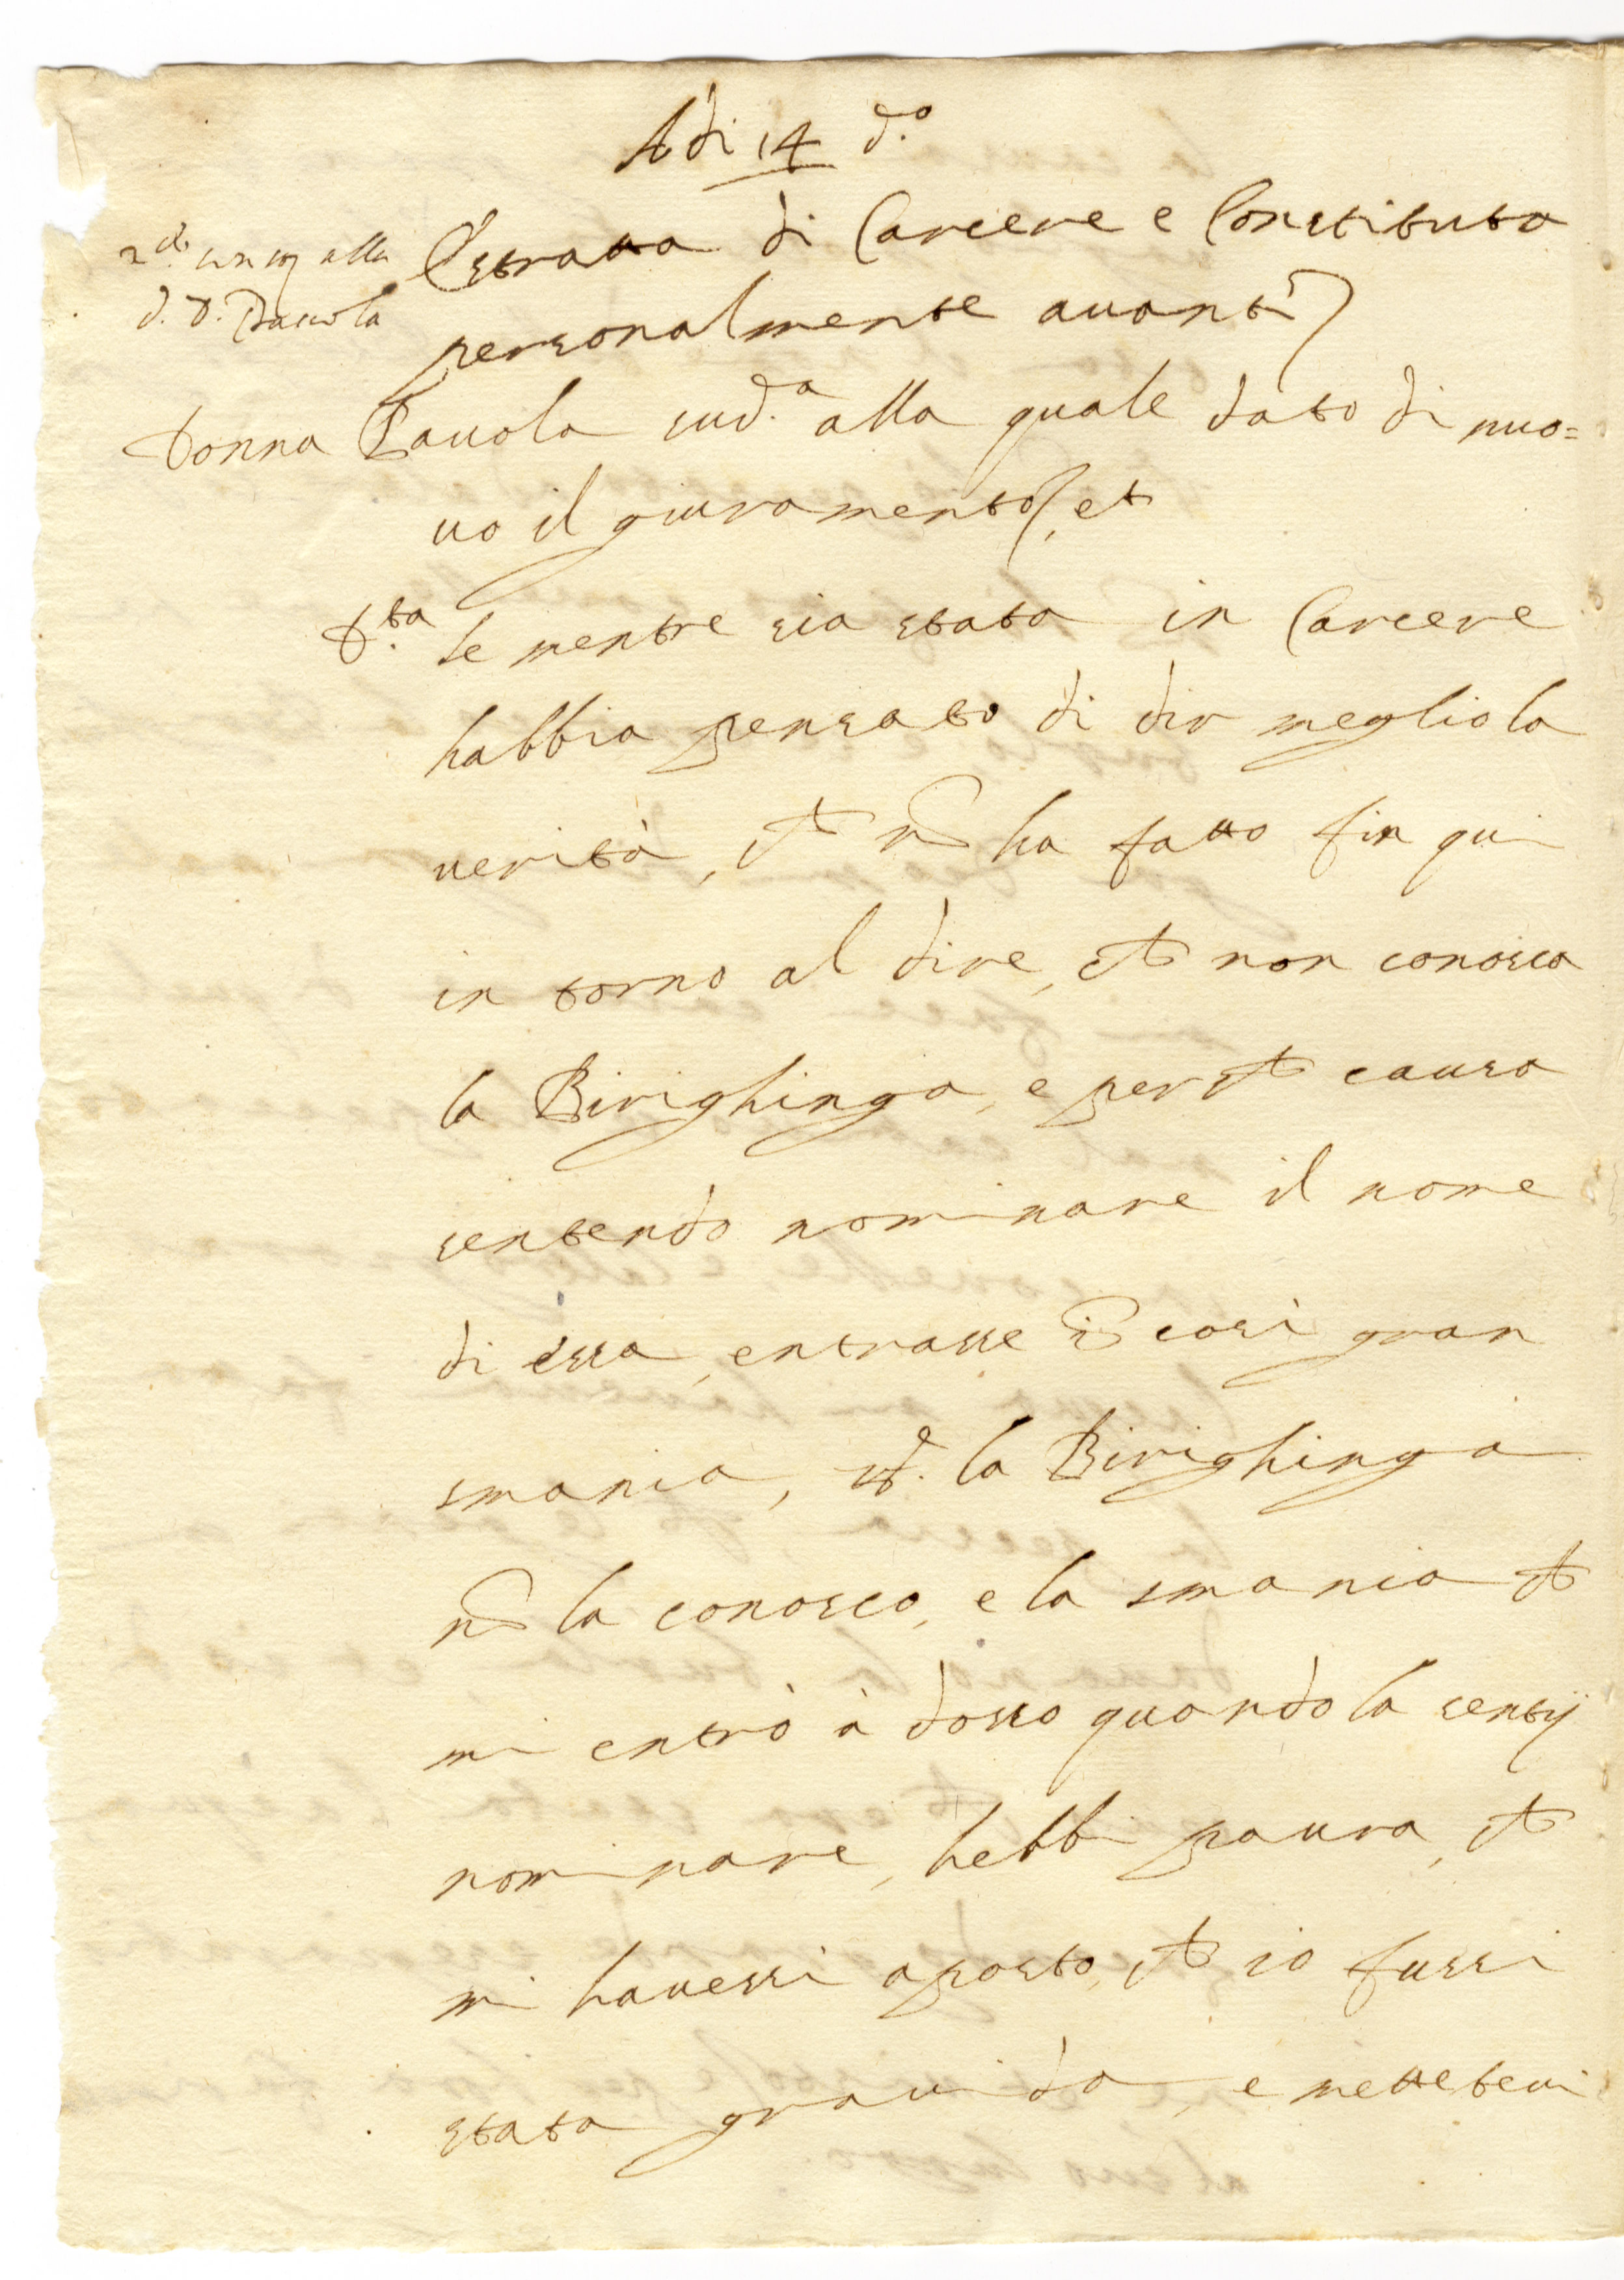 Adi 14 d.o
2.do
alla
d. D. Pauola
Estratta di Carcere e Constituta
personalmente auanti
Donna Pauola sud.a alla quale dato di nuo=
uo il giuramento, et
D.ta se mentre sia stata in Carcere
habbia pensato di dir meglio la
uerità, ch nō ha fatto fin qui
in torno al dire, ch non conosca
la Birighinga, e per ch causa
sentendo nominare il nome
di essa, entrasse ī cosi gran
smania, la Birighinga
nō la conosco, e la smania ch
mi entrò à dosso quando la sentij
nominare, hebbi paura, ch
mi hauessi aposto, ch io fussi
stata grauida, e metteteui